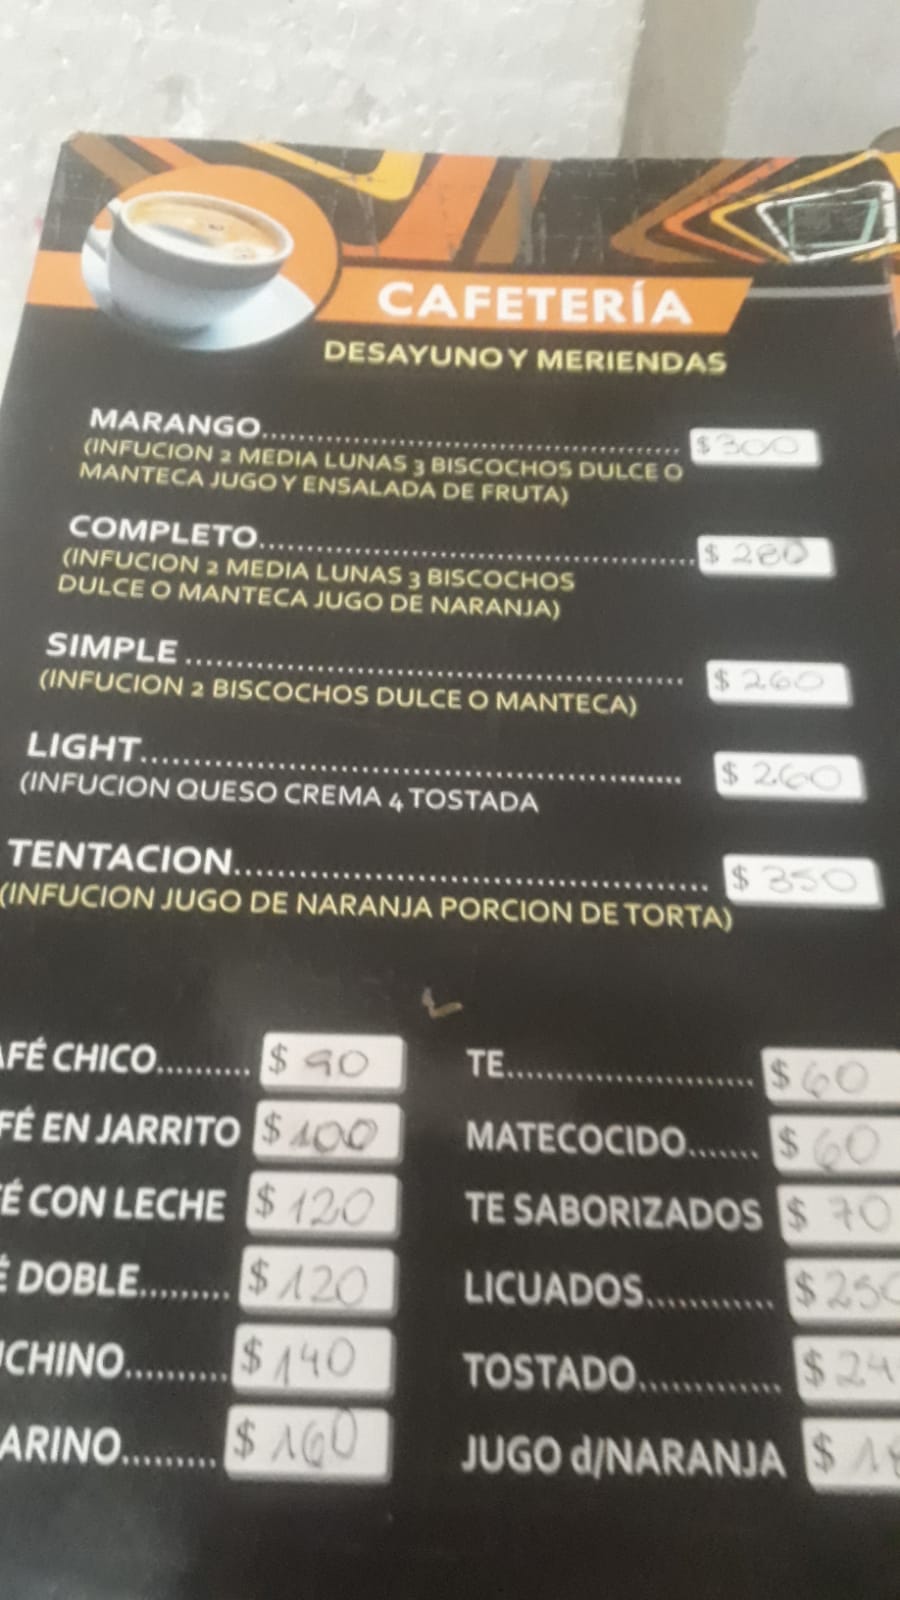 CAFETERÍA
DESAYUNO Y MERIENDAS
MARANGO................................................ $300
(INFUCION 2 MEDIA LUNAS 3 BISCOCHOS DULCE O
MANTECA JUGO Y ENSALADA DE FRUTA)
COMPLETO................................................ $ 280
(INFUCION 2 MEDIA LUNAS 3 BISCOCHOS
DULCE O MANTECA JUGO DE NARANJA)
SIMPLE ................................................ $ 260
(INFUCION 2 BISCOCHOS DULCE O MANTECA)
LIGHT................................................ $ 260
(INFUCION QUESO CREMA 4 TOSTADA
TENTACION................................................ $ 350
(INFUCION JUGO DE NARANJA PORCION DE TORTA)
AFÉ CHICO.......... $ 90
FÉ EN JARRITO $ 100
É CON LECHE $ 120
É DOBLE......... $ 120
CHINO.......... $ 140
ARINO......... $ 160
TE........................ $ 60
MATECOCIDO....... $ 60
TE SABORIZADOS $ 70
LICUADOS............ $ 250
TOSTADO............. $ 24
JUGO d/NARANJA $ 18